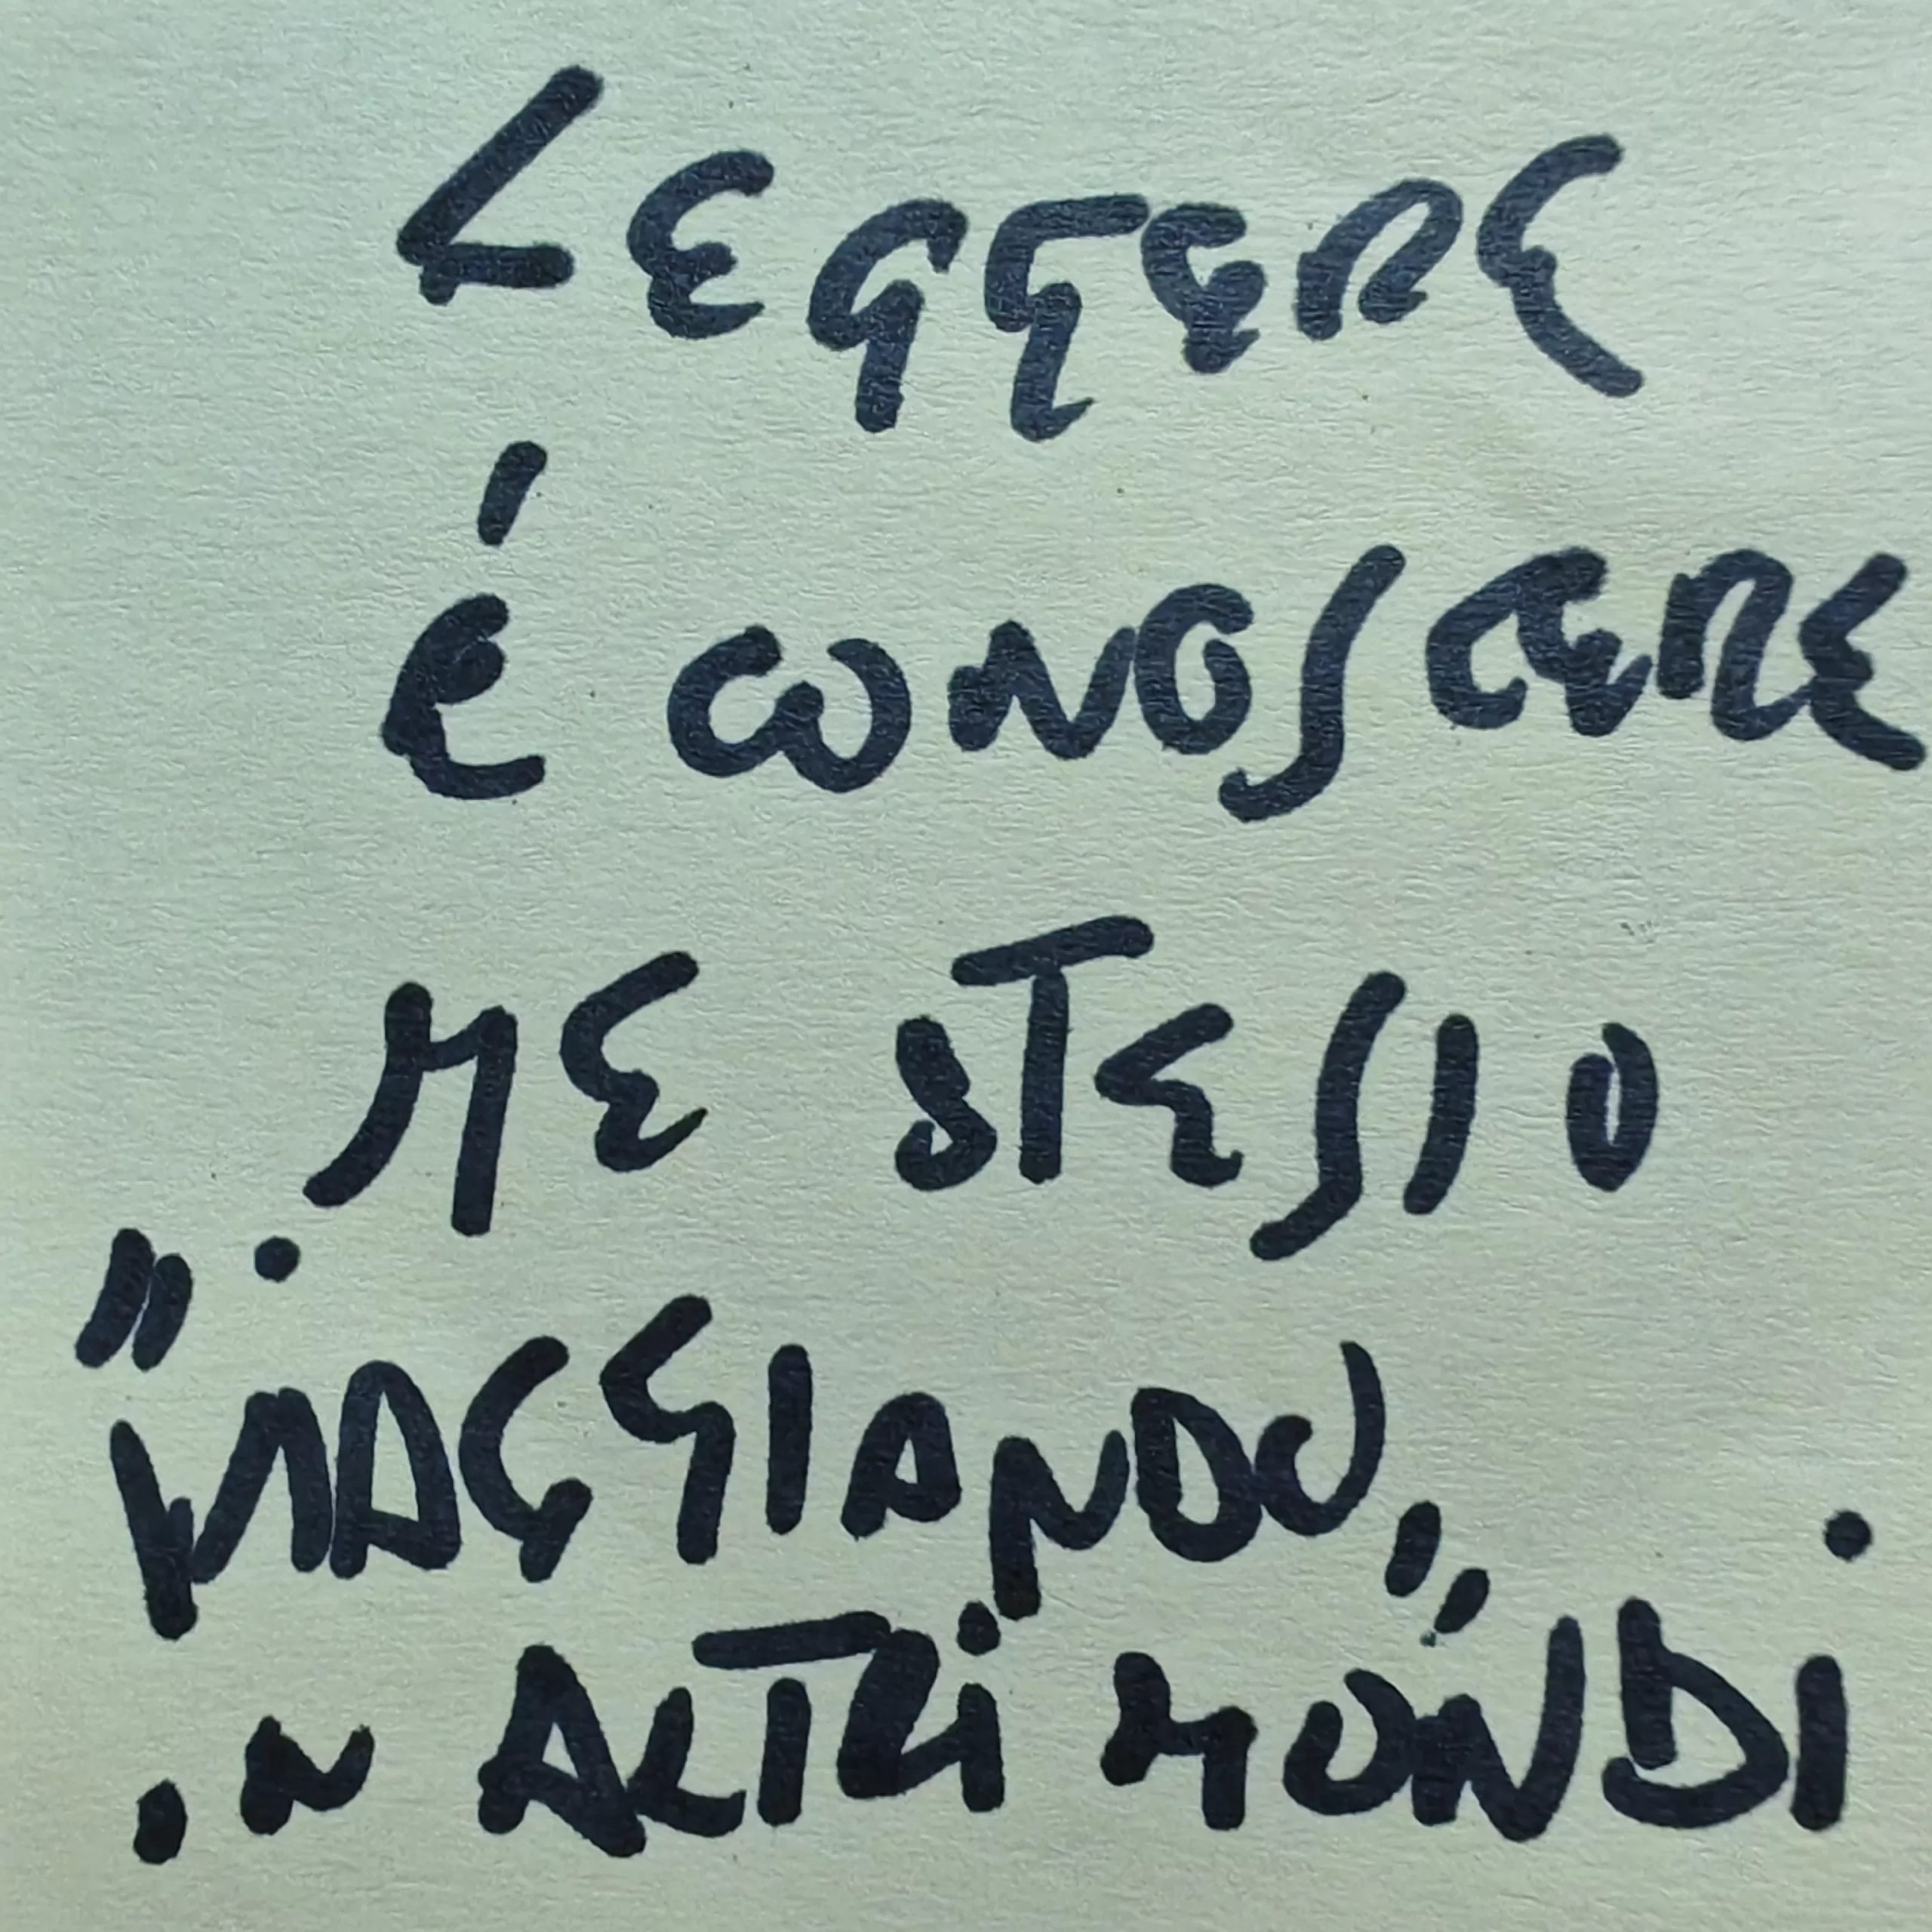 LEGGERE
É CONOSCERE
ME STESSO
"VIAGGIANDO"
in ALTRi MONDi